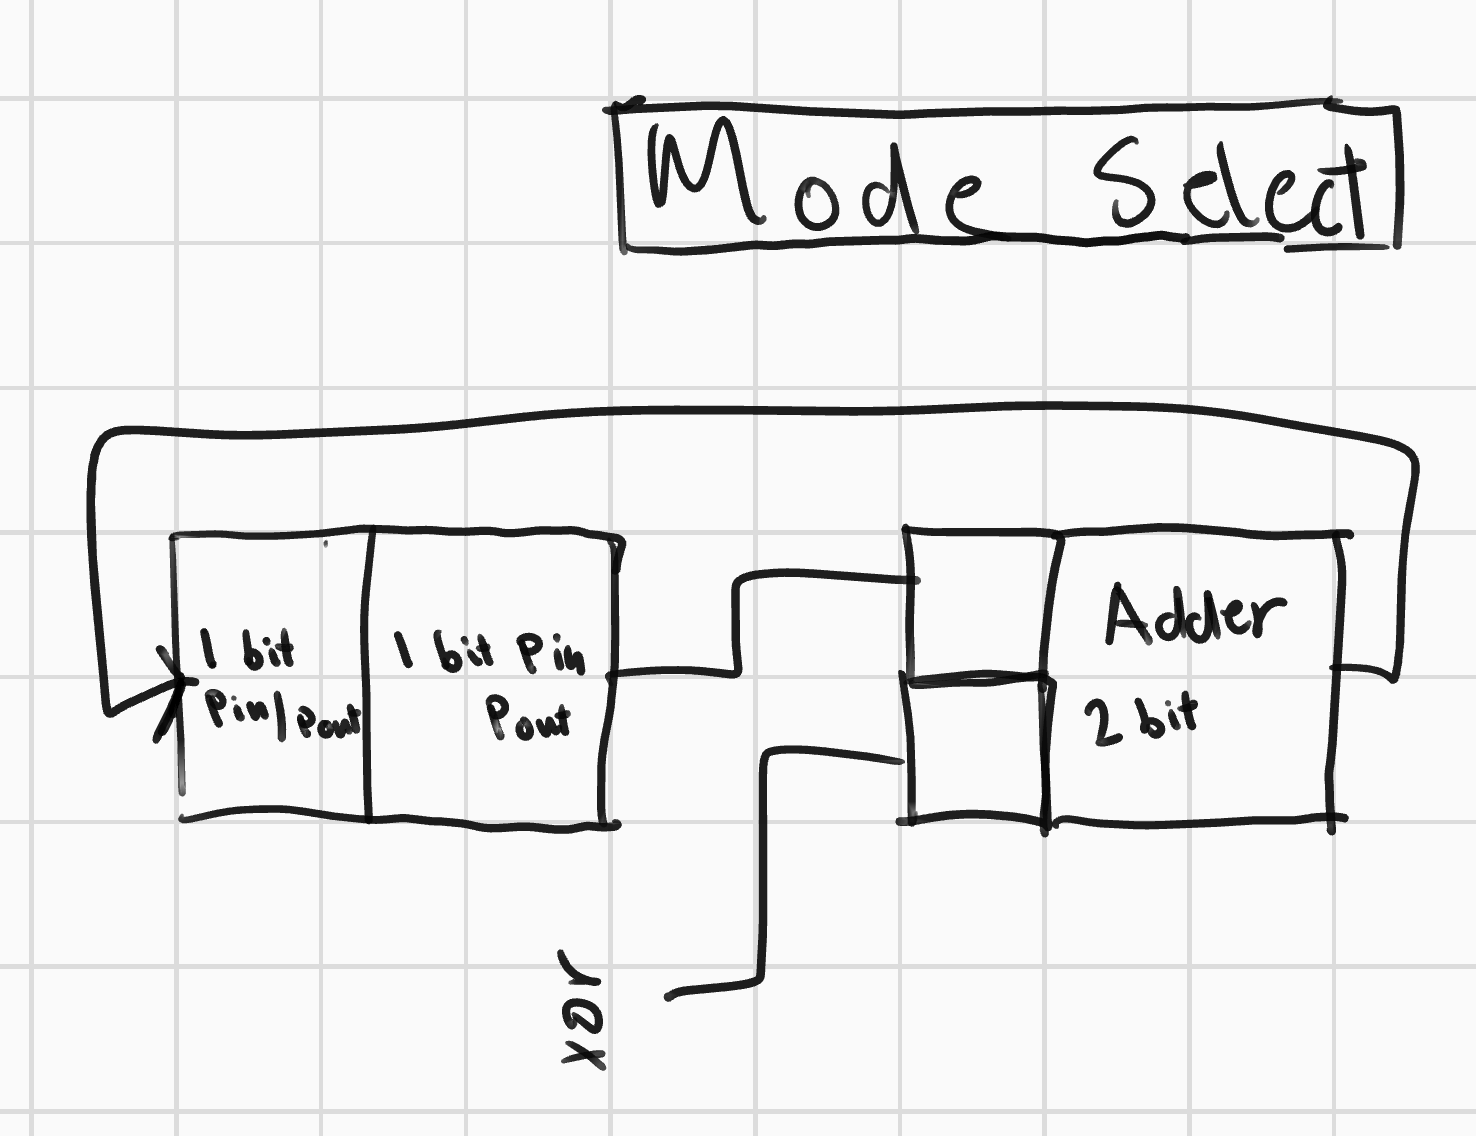 Mode Select
1 bit
Pin/Pout
1 bit Pin
Pout
Adder
2 bit
xor